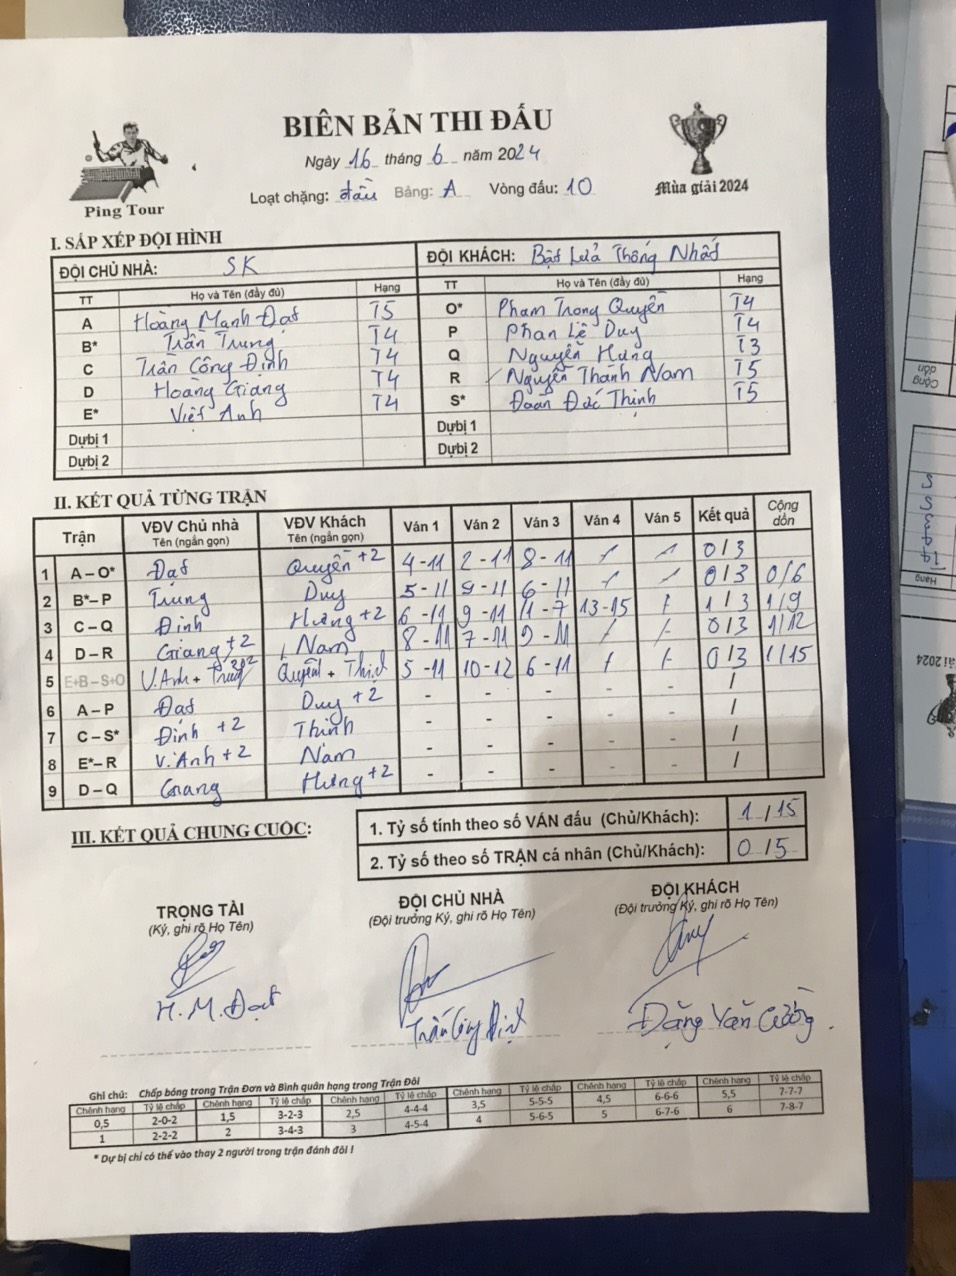 BIÊN BẢN THI ĐẤU
Ngày 16 tháng 6 năm 2024
Loạt chặng: đầu Bảng: A Vòng đấu: 10
Ping Tour
Mùa giải 2024
I. SẮP XẾP ĐỘI HÌNH
ĐỘI CHỦ NHÀ: SK ĐỘI KHÁCH: Bật Lửa Thống Nhất
TT Họ và Tên (đầy đủ) Hạng TT Họ và Tên (đầy đủ) Hạng
A Hoàng Mạnh Đạt T5 O* Phạm Trọng Quyền T4
B* Trần Trung T4 P Phan Lê Duy T4
C Trần Công Định T4 Q Nguyễn Hưng T3
D Hoàng Giang T4 R Nguyễn Thành Nam T5
E* Việt Anh T4 S* Đoàn Đức Thịnh T5
Dự bị 1 Dự bị 1
Dự bị 2 Dự bị 2
II. KẾT QUẢ TỪNG TRẬN
Trận VĐV Chủ nhà Tên (ngắn gọn) VĐV Khách Tên (ngắn gọn) Ván 1 Ván 2 Ván 3 Ván 4 Ván 5 Kết quả Cộng dồn
1 A – O* Đạt Quyền +2 4-11 2-11 8-11 / / 0/3
2 B* – P Trung Duy 5-11 9-11 6-11 / / 0/3 0/6
3 C – Q Định Hưng +2 6-11 9-11 11-7 13-15 / 1/3 1/9
4 D – R Giang +2 Nam 8-11 7-11 9-11 / / 0/3 1/12
5 E+B – S+O V.Anh + Trung Quyền + Thịnh 5-11 10-12 6-11 / / 0/3 1/15
6 A – P Đạt Duy +2 - - - - - /
7 C – S* Định +2 Thịnh - - - - - /
8 E* – R V.Anh +2 Nam - - - - - /
9 D – Q Giang Hưng +2 - - - - - /
III. KẾT QUẢ CHUNG CUỘC:
1. Tỷ số tính theo số VÁN đấu (Chủ/Khách): 1/15
2. Tỷ số theo số TRẬN cá nhân (Chủ/Khách): 0/5
TRỌNG TÀI ĐỘI CHỦ NHÀ ĐỘI KHÁCH
(Ký, ghi rõ Họ Tên) (Đội trưởng Ký, ghi rõ Họ Tên) (Đội trưởng Ký, ghi rõ Họ Tên)
H.M.Đạt Trần Công Định Đặng Văn Cường
Ghi chú: Chấp bóng trong Trận Đơn và Bình quân hạng trong Trận Đôi
Chênh hạng Tỷ lệ chấp Chênh hạng Tỷ lệ chấp Chênh hạng Tỷ lệ chấp Chênh hạng Tỷ lệ chấp Chênh hạng Tỷ lệ chấp Chênh hạng Tỷ lệ chấp
0,5 2-0-2 1,5 3-2-3 2,5 4-4-4 3,5 5-5-5 4,5 6-6-6 5,5 7-7-7
1 2-2-2 2 3-4-3 3 4-5-4 4 5-6-5 5 6-7-6 6 7-8-7
* Dự bị chỉ có thể vào thay 2 người trong trận đánh đôi !
Cộng dồn
Hạng